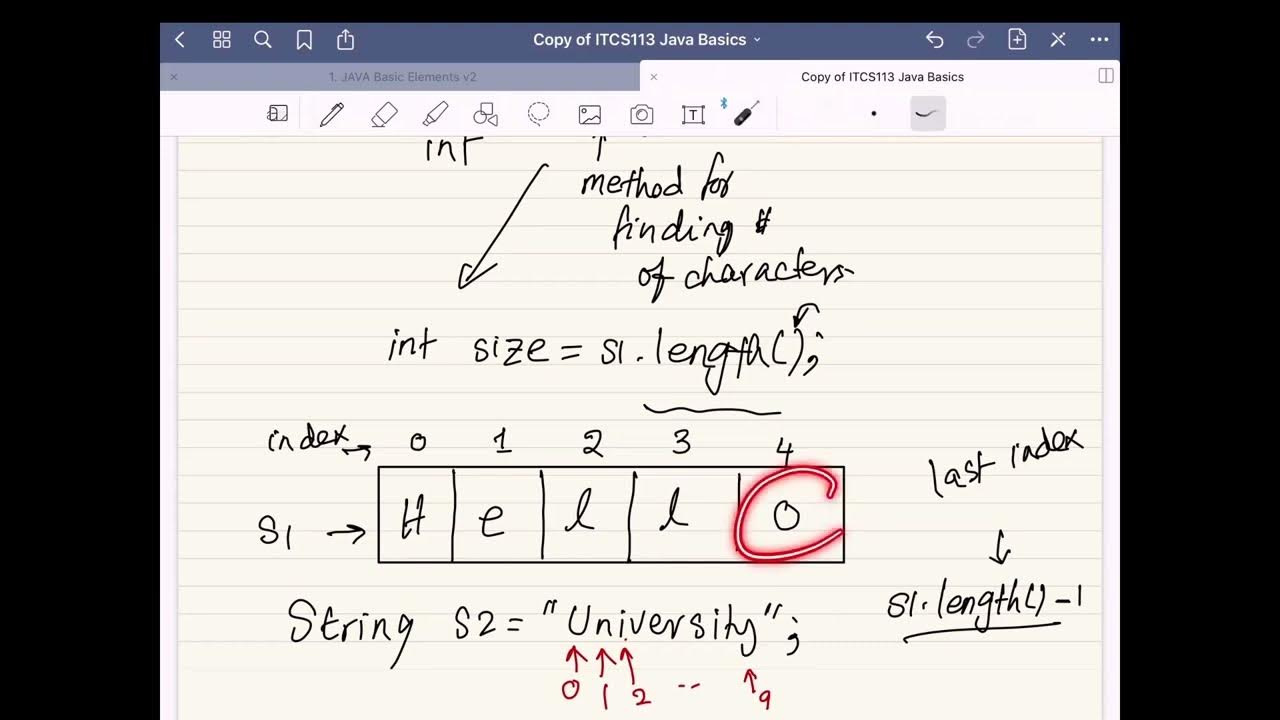 Copy of ITCS113 Java Basics
1. JAVA Basic Elements v2
Copy of ITCS113 Java Basics
T
int
method for
finding #
of characters
int size = s1.length();
index 0 1 2 3 4
last index
s1 H e l l o
s1.length() - 1
String s2 = "University";
0 1 2 -- 9